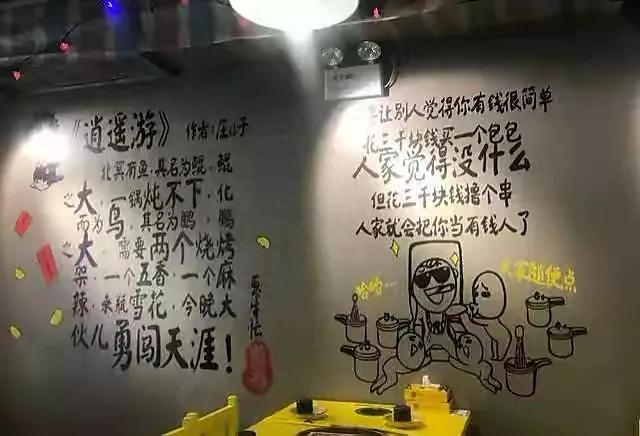 《逍遥游》 作者:庄小子
北冥有鱼,其名为鲲,鲲
之大,一锅炖不下,化
而为鸟,其名为鹏,鹏
之大,需要两个烧烤
架,一个五香,一个麻
辣,来瓶雪花,今晚大
伙儿勇闯天涯!
让别人觉得你有钱很简单
花三千块钱买一个包包
人家觉得没什么
但花三千块钱撸个串
人家就会把你当有钱人了
哈哈一
大家随便点